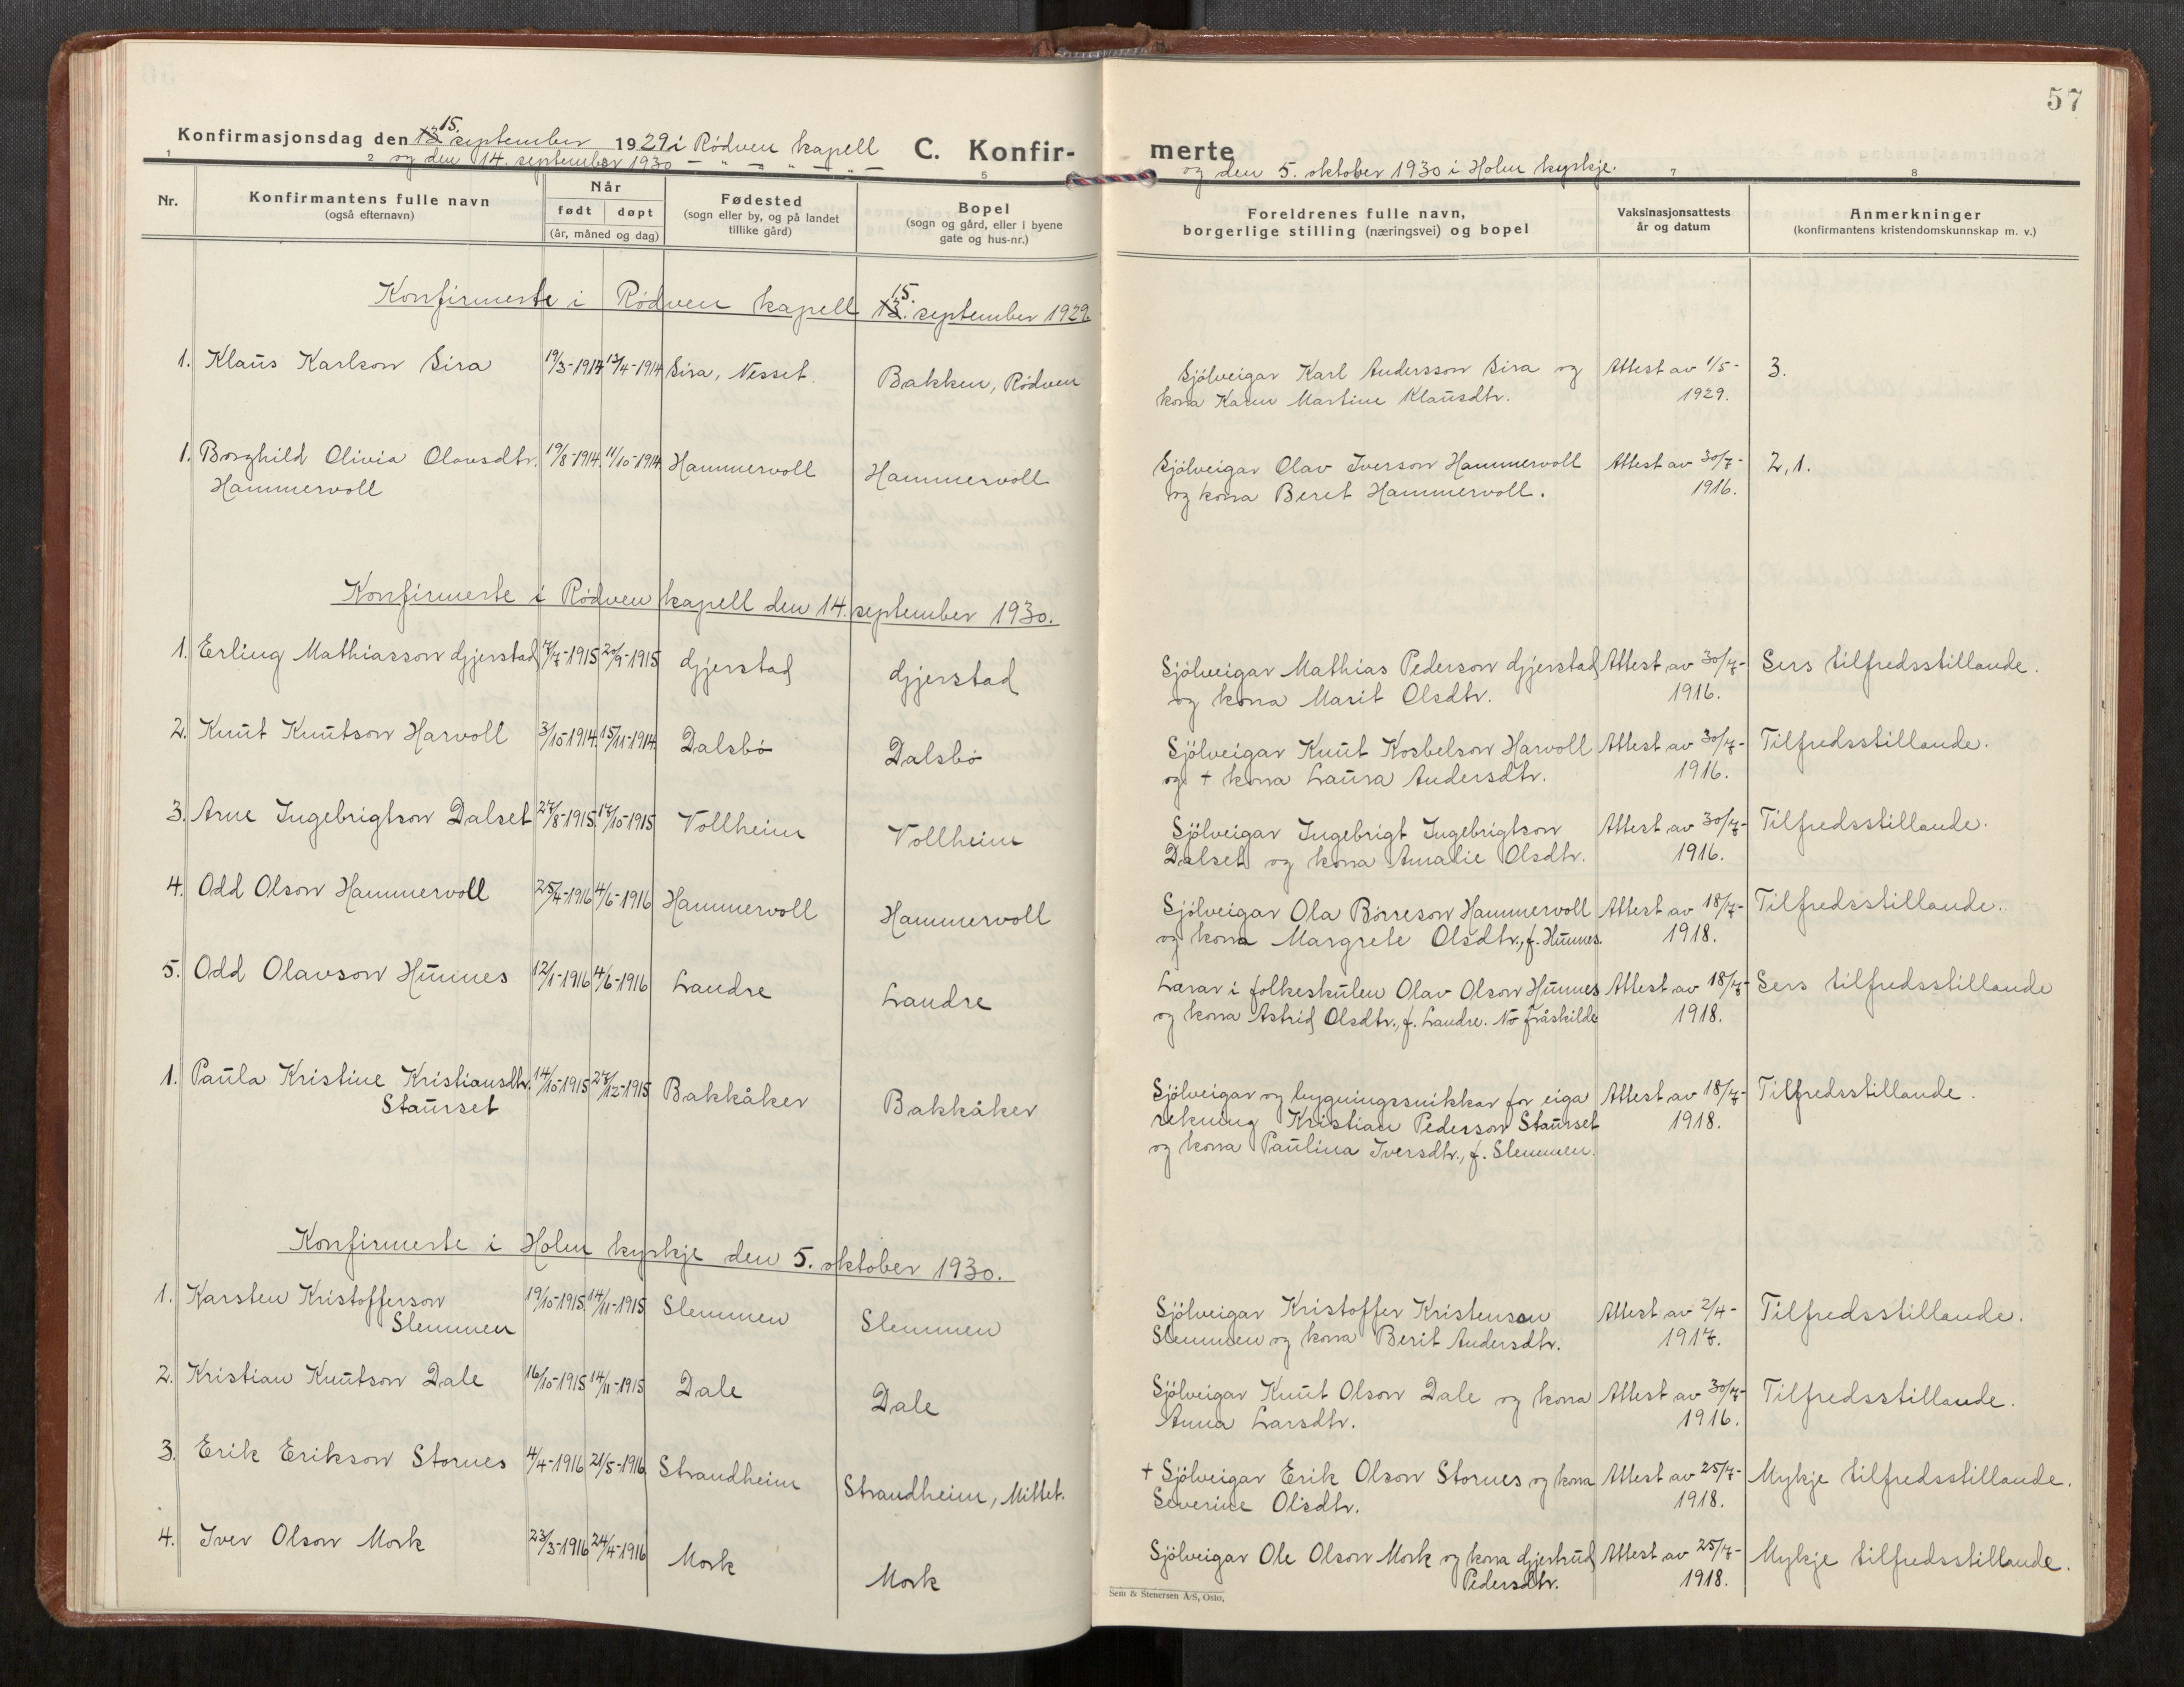 57
Konfirmasjonsdag den 13 15. september 1929 i Rødven kapell C. Konfir-
og den 14. september 1930 - " - " - " -
merte
og den 5. oktober 1930 i Holm kyrkje.
1 2 5 7 8
Nr. Konfirmantens fulle navn (også efternavn)
Når født døpt (år, måned og dag)
Fødested (sogn eller by, og på landet tillike gård)
Bopel (sogn og gård, eller i byene gate og hus-nr.)
Foreldrenes fulle navn, borgerlige stilling (næringsvei) og bopel
Vaksinasjonsattests år og datum
Anmerkninger (konfirmantens kristendomskunnskap m. v.)
Konfirmerte i Rødven kapell 13. 15. september 1929.
1. Klaus Karlson Sira 19/3-1914 13/4-1914 Sira, Nesset. Bakken, Rødven
Sjölveigar Karl Andersson Sira og Attest av 1/5- 3.
kona Karen Martine Klausdtr. 1929.
1. Borghild Olivia Olavsdtr. 19/8-1914. 11/10-1914 Hammervoll Hammervoll
Hammervoll
Sjölveigar Olav Iverson Hammervoll Attest av 30/7- 2,1.
og kona Beret Hammervoll. 1916.
Konfirmerte i Rødven kapell den 14. september 1930.
1. Erling Mathiasson Gjerstad 7/7-1915 20/9-1915 Gjerstad Gjerstad
Sjölveigar Mathias Pederson Gjerstad Attest av 30/7- Sers tilfredsstillande.
og kona Marit Olsdtr. 1916.
2. Knut Knutson Harvoll 3/10-1914. 15/11-1914. Dalsbø Dalsbø
Sjölveigar Knut Kosbelson Harvoll Attest av 30/7- Tilfredsstillande.
og + kona Laura Andersdtr. 1916.
3. Arne Ingebrigtson Dalset 27/8-1915. 17/10-1915 Vollheim Vollheim
Sjölveigar Ingebrigt Ingebrigtson Attest av 30/7- Tilfredsstillande.
Dalset og kona Amalie Olsdtr. 1916.
4. Odd Olson Hammervoll 25/4-1916 4/6-1916 Hammervoll Hammervoll
Sjölveigar Ola Børreson Hammervoll Attest av 18/7- Tilfredsstillande.
og kona Margrete Olsdtr., f. Hunnes. 1918.
5. Odd Olavson Hunnes 12/1-1916 4/6-1916 Landre Landre
Lærar i folkeskulen Olav Olson Hunnes Attest av 18/7- Sers tilfredsstillande
og kona Astrid Olsdtr., f. Landre. No fråskilde 1918.
1. Paula Kristine Kristiansdtr. 14/10-1915 27/12-1915 Bakkåker Bakkåker
Staurset
Sjölveigar og bygningssnikkar for eiga Attest av 18/7- Tilfredsstillande.
rekning Kristian Pederson Staurset 1918.
og kona Paulina Iversdtr., f. Slemmen.
Konfirmerte i Holm kyrkje den 5. oktober 1930.
1. Karsten Kristofferson 19/10-1915. 14/11-1915 Slemmen Slemmen
Slemmen
Sjölveigar Kristoffer Kristenson Attest av 2/4- Tilfredsstillande.
Slemmen og kona Berit Andersdtr. 1917.
2. Kristian Knutson Dale 16/10-1915 14/11-1915 Dale Dale
Sjölveigar Knut Olson Dale og kona Attest av 30/7- Tilfredsstillande.
Anna Larsdtr. 1916.
3. Erik Erikson Stornes 4/4-1916 21/5-1916. Strandheim Strandheim, Mittet.
+ Sjölveigar Erik Olson Stornes og kona Attest av 25/7- Mykje tilfredsstillande.
Severine Olsdtr. 1918.
4. Iver Olson Mork 23/3-1916 24/4-1916 Mork Mork
Sjölveigar Ole Olson Mork og kona Gjertrud Attest av 25/7- Mykje tilfredsstillande.
Pedersdtr. 1918.
Sem & Stenersen A/S, Oslo.